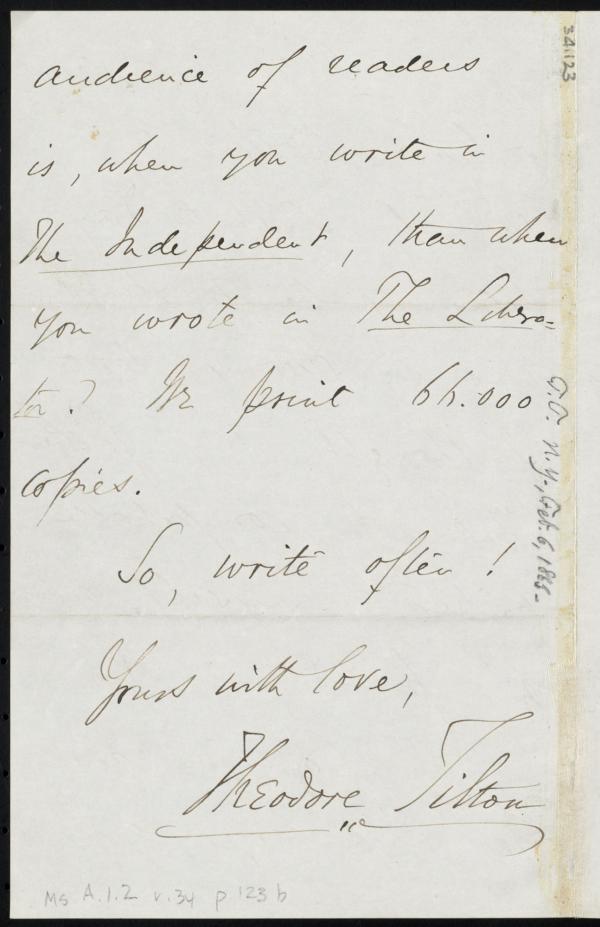 audience of readers
is, when you write in
The Independent, than when
you wrote in The Libera-
tor? We print 66.000
copies.
So, write often!
Yours with love,
Theodore Tilton
34.123
N.Y., Oct. 6, 1865-
Ms A.1.2 v.34 p 123 b